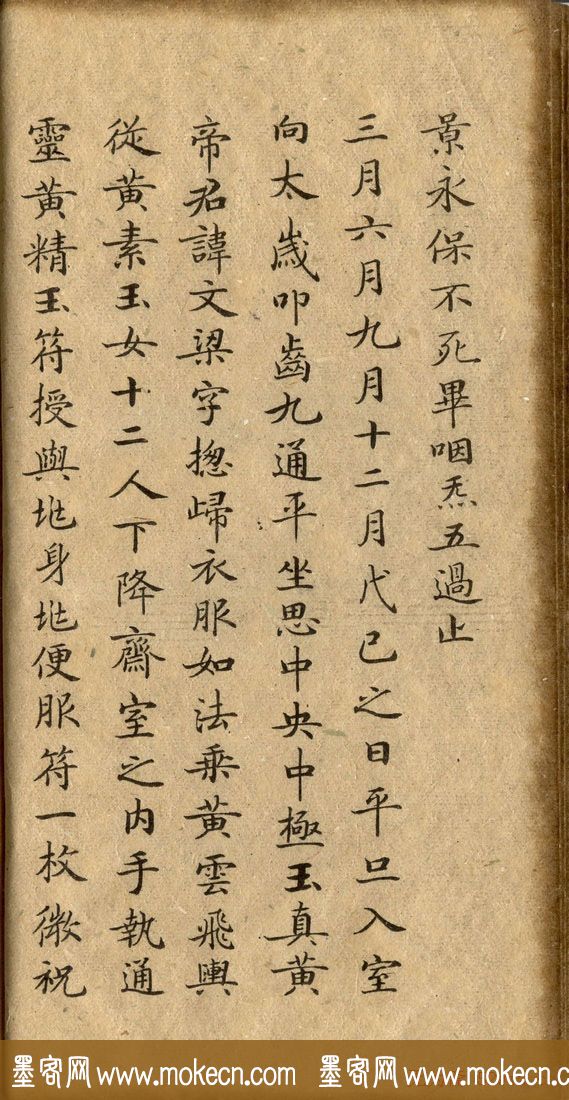 景永保不死畢咽炁五過止
三月六月九月十二月戊己之日平旦入室
向太歲叩齒九通平坐思中央中極玉真黃
帝君諱文梁字揔歸衣服如法乗黃雲飛輿
從黃素玉女十二人下降齋室之内手執通
靈黃精玉符授與兆身兆便服符一枚微祝
墨客网 www.mokecn.com 墨客网 www.mokecn.com